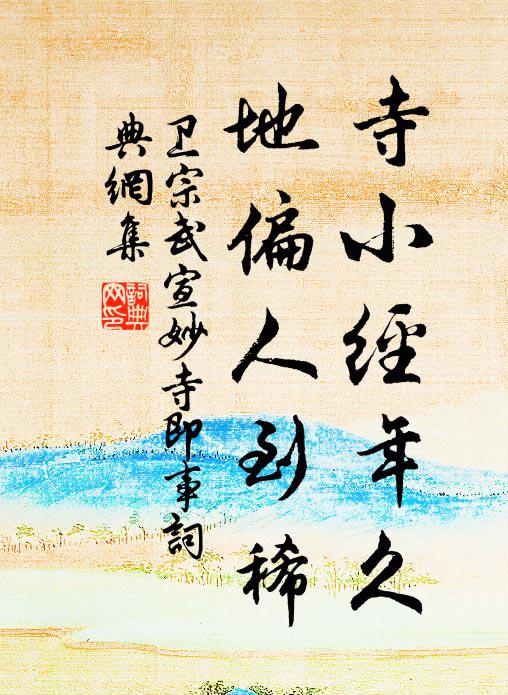 寺小經年久
地偏人到稀
卫宗武宣妙寺即事詞
典網集
詞典
网印